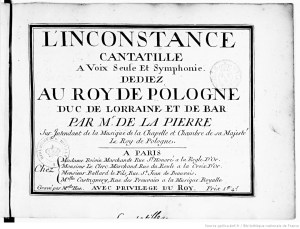 L'INCONSTANCE
CANTATILLE
A Voix Seule Et Symphonie.
DEDIEZ
AU ROY DE POLOGNE
DUC DE LORRAINE ET DE BAR
PAR Mr. DE LA PIERRE
Sur Intendent de la Musique de la Chapelle et Chambre de sa Majesté
Le Roy de Pologne.
A PARIS
Chez
Madame Boivin Marchande Rue St. Honoré a la Regle D'Or.
Monsieur Le Clerc Marchand Rue du Roule a la Croix D'or.
Monsieur Ballard le Fils, Rue St. Jean de Beauvais.
Melle Castagnery, Rue des Prouvaires a la Musique Royalle
Gravé par Melle
AVEC PRIVILEGE DU ROY.
Prix
Source gallica.bnf.fr / Bibliothèque nationale de France